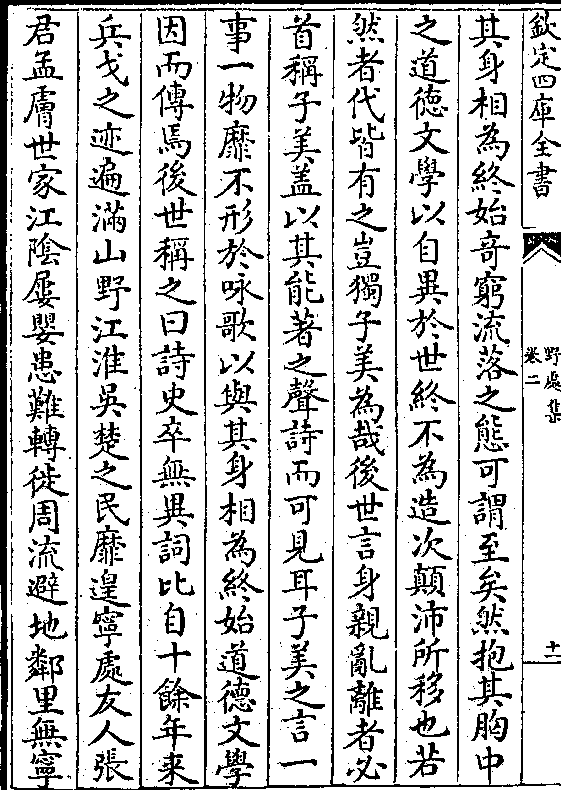 欽定四庫全書
野處集
卷二
十一
其身相為終始竒窮流落之態可謂至矣然抱其胸中
之道徳文學以自異於世終不為造次顛沛所移也若
然者代皆有之豈獨子美為哉後世言身親亂離者必
首稱子美盖以其能著之聲詩而可見耳子美之言一
事一物靡不形於咏歌以與其身相為終始道徳文學
因而傳焉後世稱之曰詩史卒無異詞比自十餘年来
兵戈之迹遍滿山野江淮吳楚之民靡遑寧處友人張
君孟膚世家江陰屢嬰患難轉徙周流避地鄰里無寧